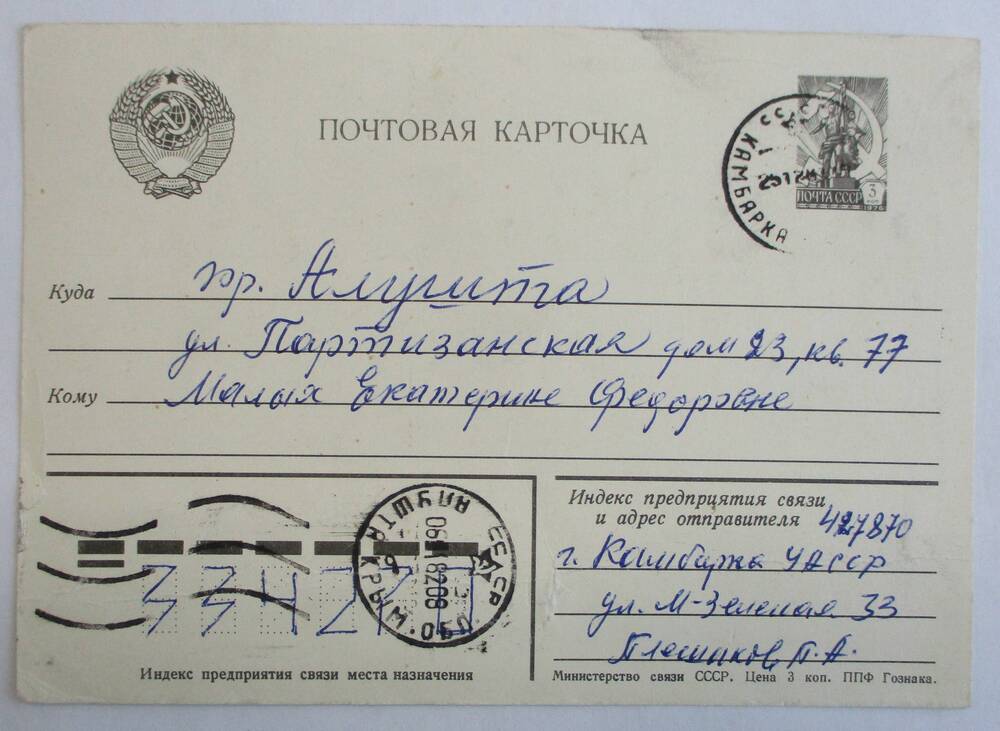 ПОЧТОВАЯ КАРТОЧКА
СССР КАМБАРКА
ПОЧТА СССР 3 КОП
1976
Куда гр. Алушта
ул. Партизанская дом 23, кв. 77
Кому Малых Екатерине Федоровне
АЛУШТА КРЫМ. ОБЛ. СССР
Индекс предприятия связи места назначения
Индекс предприятия связи
и адрес отправителя 427870
г. Камбарка УАССР
ул. М-Зеленая 33
Плешаков, П. А.
Министерство связи СССР. Цена 3 коп. ППФ Гознака.